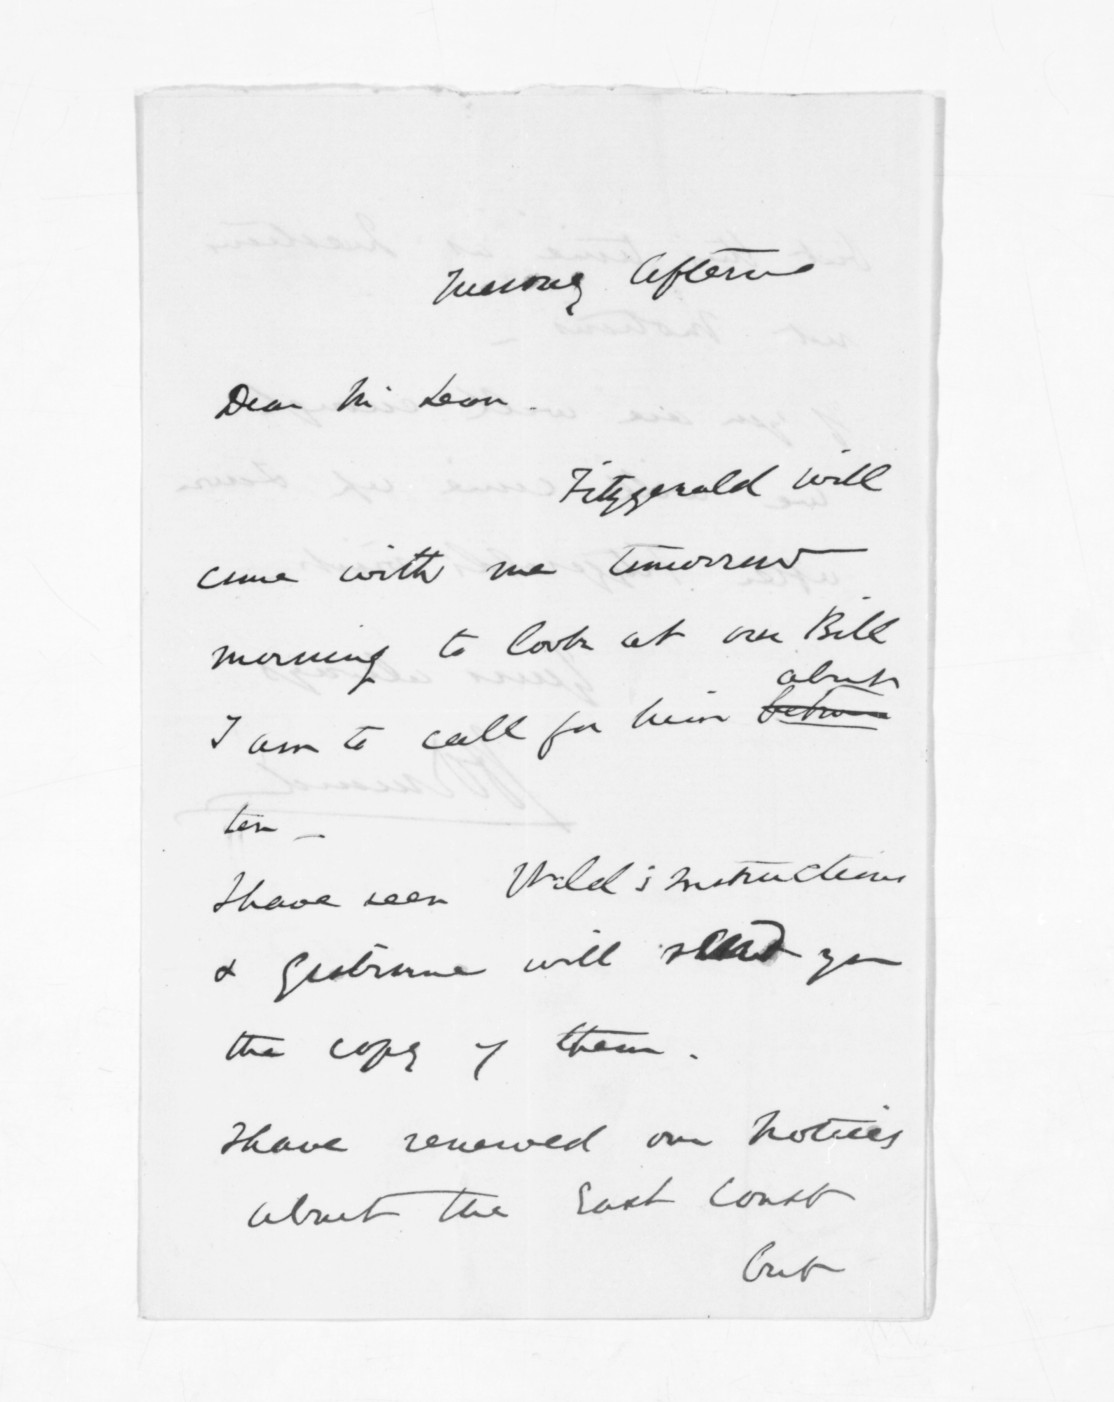 Tuesday Afternn
Dear McLean.
Fitzgerald will
come with me tomorrow
morning to look at our Bill
about
I am to call for him between
ten —
I have seen Wild's instructions
& Gisborne will send you
the copy of them.
I have renewed our Notices
about the East Coast
but